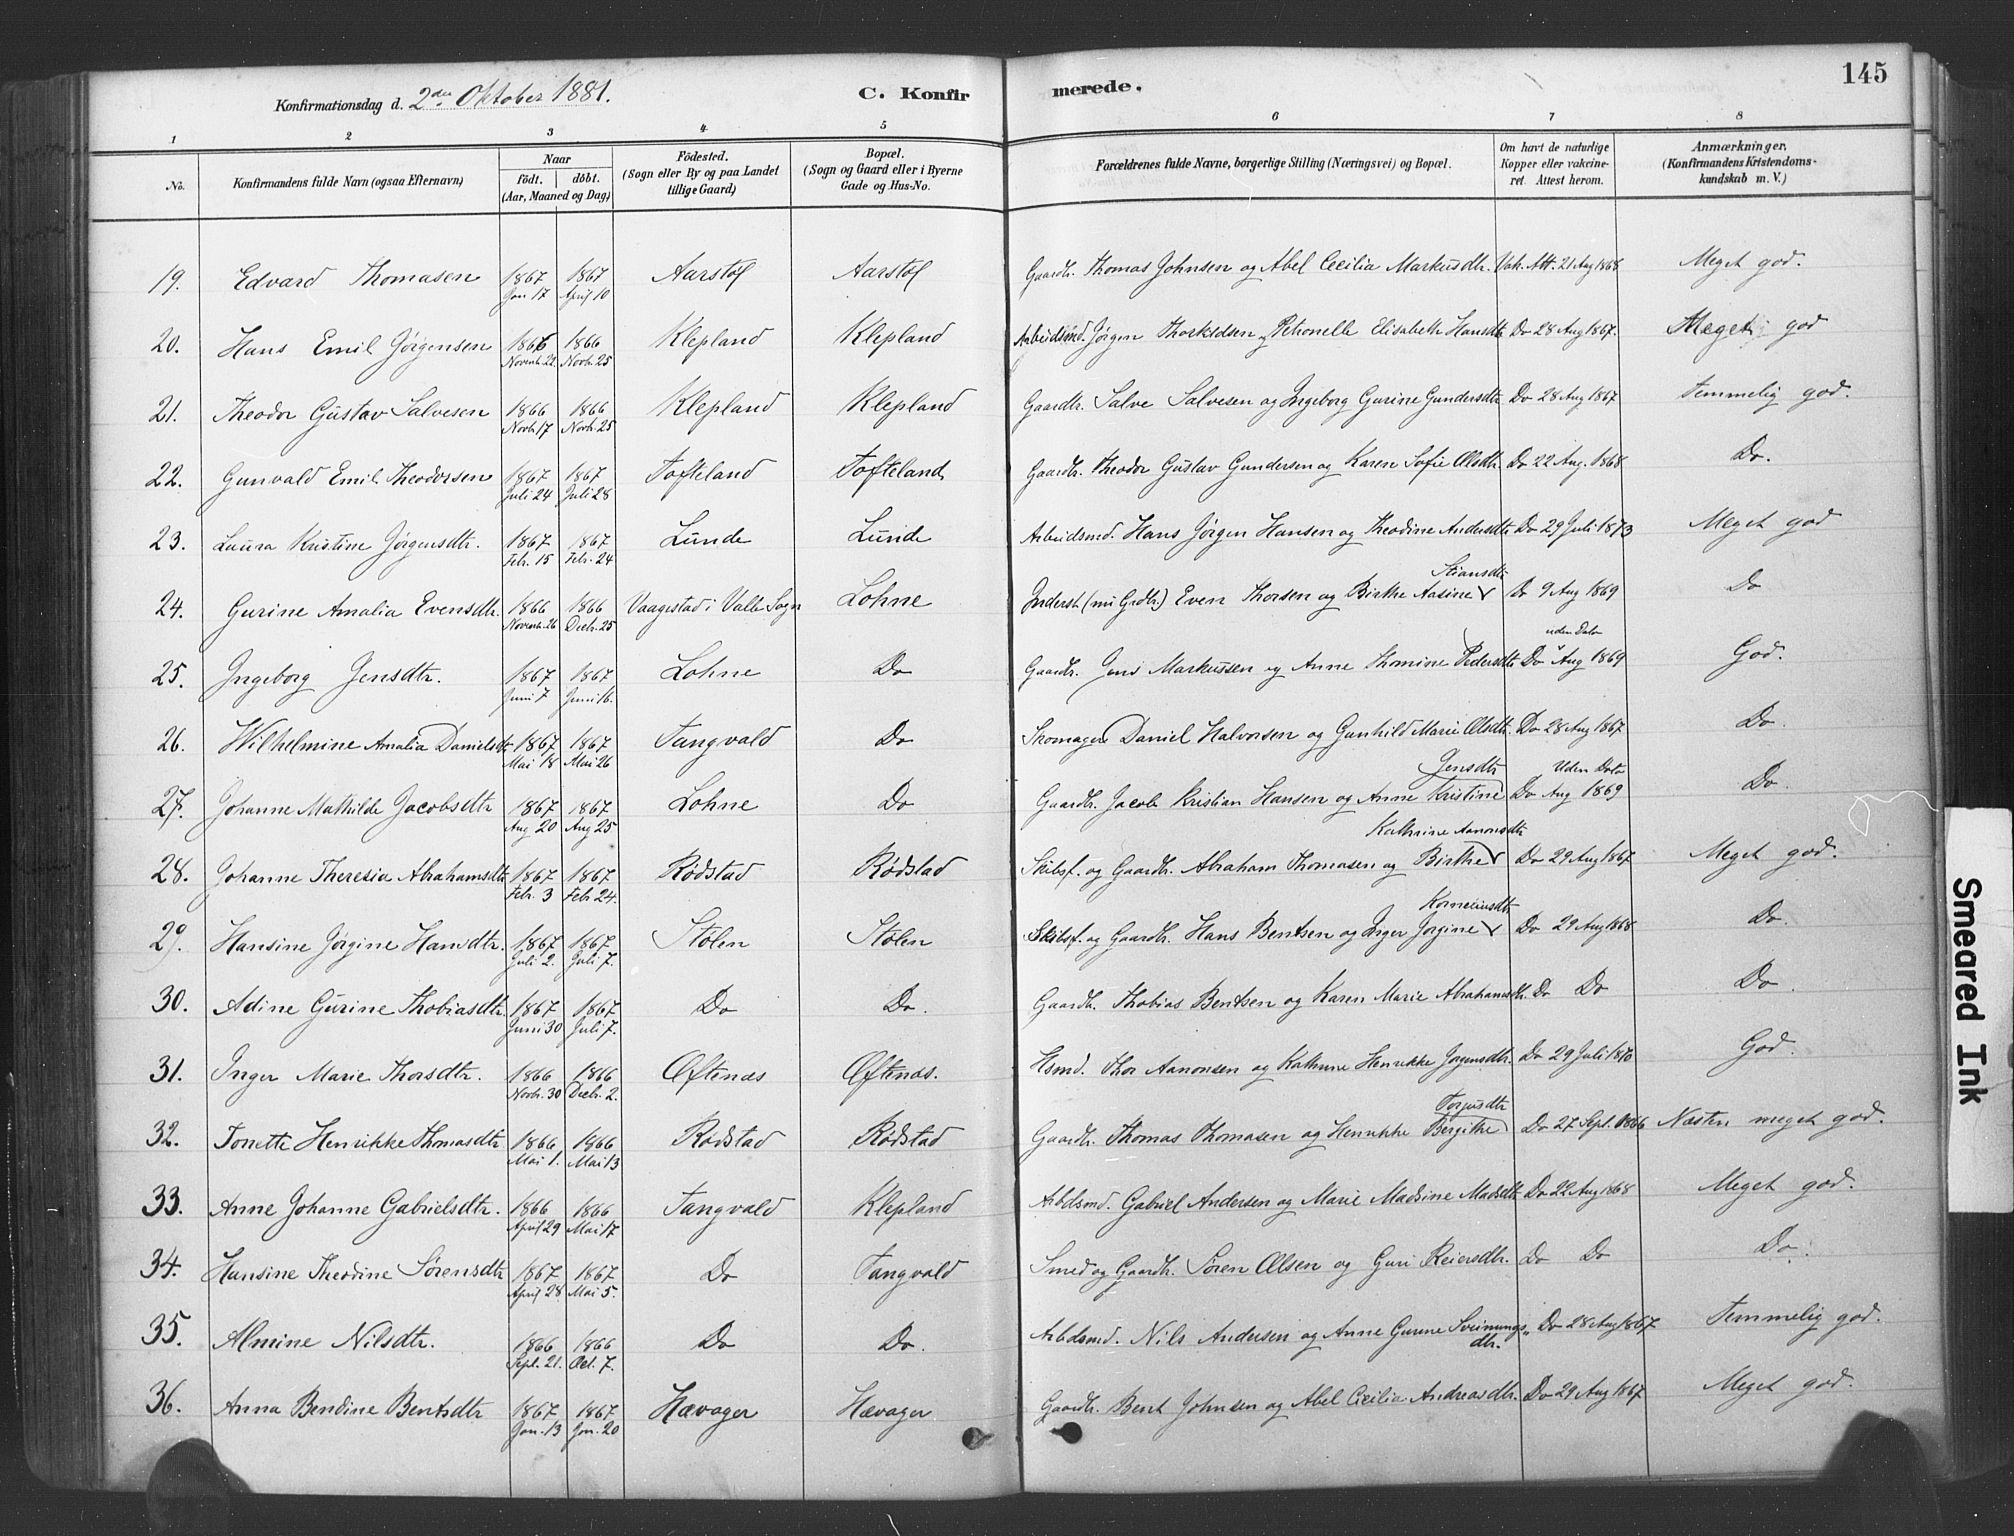 145
Konfirmationsdag d. 2den Oktober 1881. C. Konfirmerede.
1 2 3 4 5 6 7 8
No. Konfirmandens fulde Navn (ogsaa Efternavn) Naar født. døbt. (Aar, Maaned og Dag) Fødested. (Sogn eller By og paa Landet tillige Gaard) Bopæl. (Sogn og Gaard eller i Byerne Gade og Hus-No. Forældrenes fulde Navne, borgerlige Stilling (Næringsvei) og Bopæl. Om havt de naturlige Kopper eller vakcineret. Attest herom. Anmærkninger. (Konfirmandens Kristendomskundskab m. V.)
19. Edvard Thomasen 1867 Jan 17 1867 April 10 Aarstøl Aarstøl Gaardbr. Thomas Johnsen og Abel Cecilia Markusdtr. Vak. Att. 21 Aug 1868 Meget god.
20. Hans Emil Jørgensen 1866 Novemb. 22 1866 Novb. 25 Klepland Klepland Arbeidsmd. Jørgen Thorkildsen og Petronelle Elisabeth Hansdtr Do 28 Aug 1867. Meget god
21. Theodor Gustav Salvesen 1866 Novb. 17 1866 Novb. 25 Klepland Klepland Gaardbr. Salve Salvesen og Ingeborg Gurine Gundersdtr Do 28 Aug 1867 Temmelig god.
22. Gunvald Emil Theodorsen 1867 Juli 24 1867 Juli 28 Tofteland Tofteland Gaardbr. Theodor Gustav Gundersen og Karen Sofie Olsdtr. Do 22 Aug. 1868 Do.
23. Laura Kristine Jørgensdtr. 1867 Febr. 15 1867 Febr. 24 Lunde Lunde Arbeidsmd. Hans Jørgen Hansen og Theodine Andersdtr Do 29 Juli 1873 Meget god
24. Gurine Amalia Evensdtr. 1866 Novemb. 26 1866 Decb. 25 Vaagestad i Valle Sogn Lohne Inderst (nu Grdbr.) Even Thorsen og Birthe Aasine Stiansdtr Do 9 Aug 1869 Do
25. Ingeborg Jensdtr. 1867 Juni 7 1867 Juni 16. Lohne Do Gaardbr. Jens Markussen og Anne Thomine Pedersdtr Do uden Dato Aug 1869 God.
26. Wilhelmine Amalia Danielsdtr 1867 Mai 18 1867 Mai 26 Tangvald Do Skomager Daniel Halvorsen og Gunhild Marie Olsdtr. Do 28 Aug 1867 Do.
27. Johanne Mathilde Jacobsdtr 1867 Aug 20 1867 Aug 25 Lohne Do Gaardbr. Jacob Kristian Hansen og Anne Kristine Jensdtr Do Uden Dato Aug 1869 Do.
28. Johanne Theresia Abrahamsdtr 1867 Febr. 3 1867 Febr 24. Rødstad Rødstad Skibsf. og Gaardbr. Abraham Thomasen og Birthe Kathrine Aanonsdtr Do 29 Aug 1867 Meget god.
29. Hansine Jørgine Hansdtr. 1867 Juli 2. 1867 Juli 7. Stølen Stølen Skibsf. og Gaardbr. Hans Bentsen og Inger Jørgine Korneliusdtr Do 29 Aug 1868 Do.
30. Adine Gurine Thobiasdtr. 1867 Juni 30 1867 Juli 7. Do Do. Gaardbr. Thobias Bentsen og Karen Marie Abrahamsdtr. Do Do Do.
31. Inger Marie Thorsdtr. 1866 Novb. 30 1866 Decbr. 2. Øftenæs Øftenæs. Hsmd. Thor Aanonsen og Kathrine Henrikke Jørgensdtr. Do 29 Juli 1870 God.
32. Tonette Henrikke Thomasdtr 1866 Mai 1. 1966 Mai 13 Rødstad Rødstad Gaardbr. Thomas Thomasen og Henrikke Bergithe Torjusdtr Do 27 Sept. 1866 Næsten meget god.
33. Anne Johanne Gabrielsdtr. 1866 April 29 1866 Mai 17 Tangvald Klepland Arbdsmd. Gabriel Andersen og Marie Madsine Madsdtr Do 22 Aug 1868 Meget god.
34. Hansine Theodine Sørensdtr 1867 April 28 1867 Mai 5. Do Tangvald Smed og Gaardbr. Søren Olsen og Guri Reiersdtr. Do Do Do.
35. Almine Nilsdtr. 1866 Sept. 21. 1866 Oct. 7. Do Do. Arbdsmd. Nils Andersen og Anne Gurine Sveinungsdtr. Do 28 Aug 1867 Temmelig god.
36. Anna Bendine Bentsdtr 1867 Jan. 13 1867 Jan. 20 Hævager Hævager Gaardbr. Bent Johnsen og Abel Cicilia Andreasdtr. Do 29 Aug 1867 Meget god.
Smeared Ink